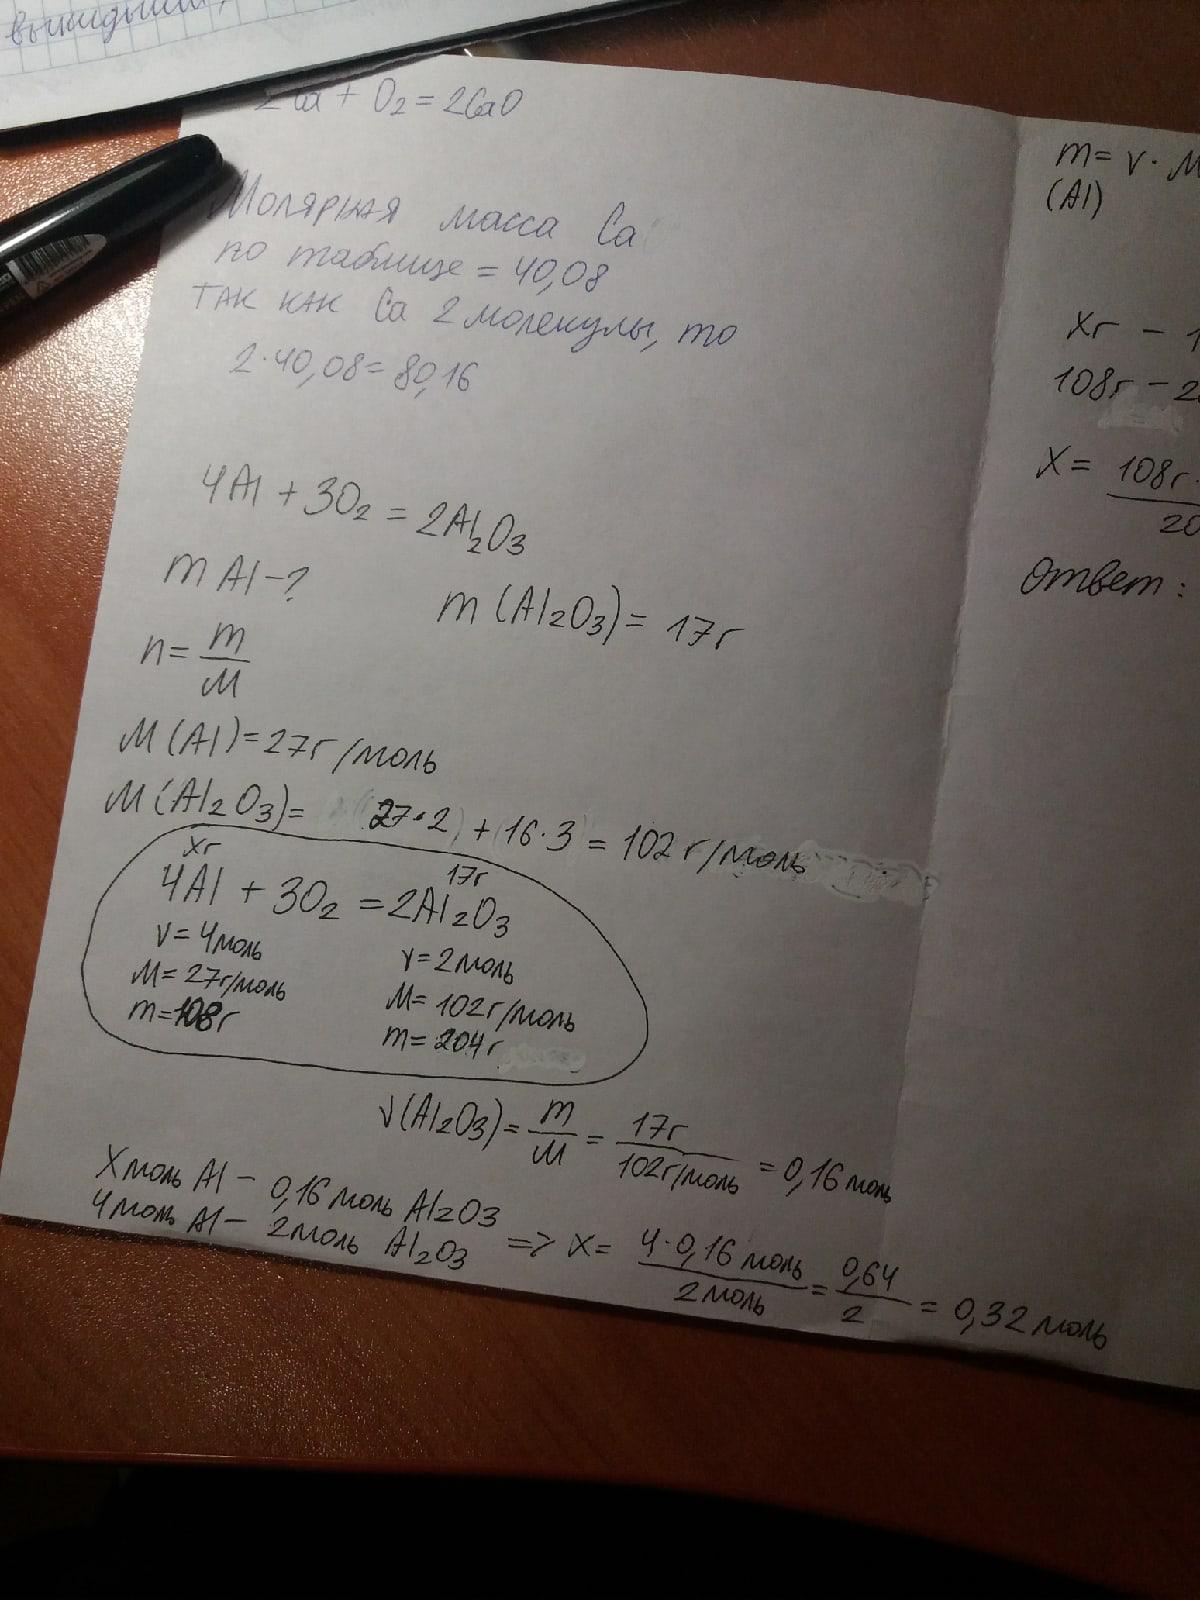 выкидыши,
2Ca + O2 = 2CaO
Молярная масса Ca
по таблице = 40,08
так как Ca 2 молекулы, то
2·40,08=80,16
4Al + 3O2 = 2Al2O3
m Al-?
m (Al2O3) = 17г
n= m/M
M(Al)=27г/моль
M(Al2O3)= (27·2) + (16·3) = 102 г/моль
xг
17г
4Al + 3O2 = 2Al2O3
ν=4моль
ν=2моль
M=27г/моль
M=102г/моль
m=108г
m=204г
ν(Al2O3)= m/M = 17г/102г/моль = 0,16 моль
X моль Al - 0,16 моль Al2O3
4моль Al - 2моль Al2O3 => x= 4·0,16 моль/2 моль = 0,64/2 = 0,32 моль
m= ν· M
(Al)
xг - 1
108г - 2
X= 108г·/20
Ответ: